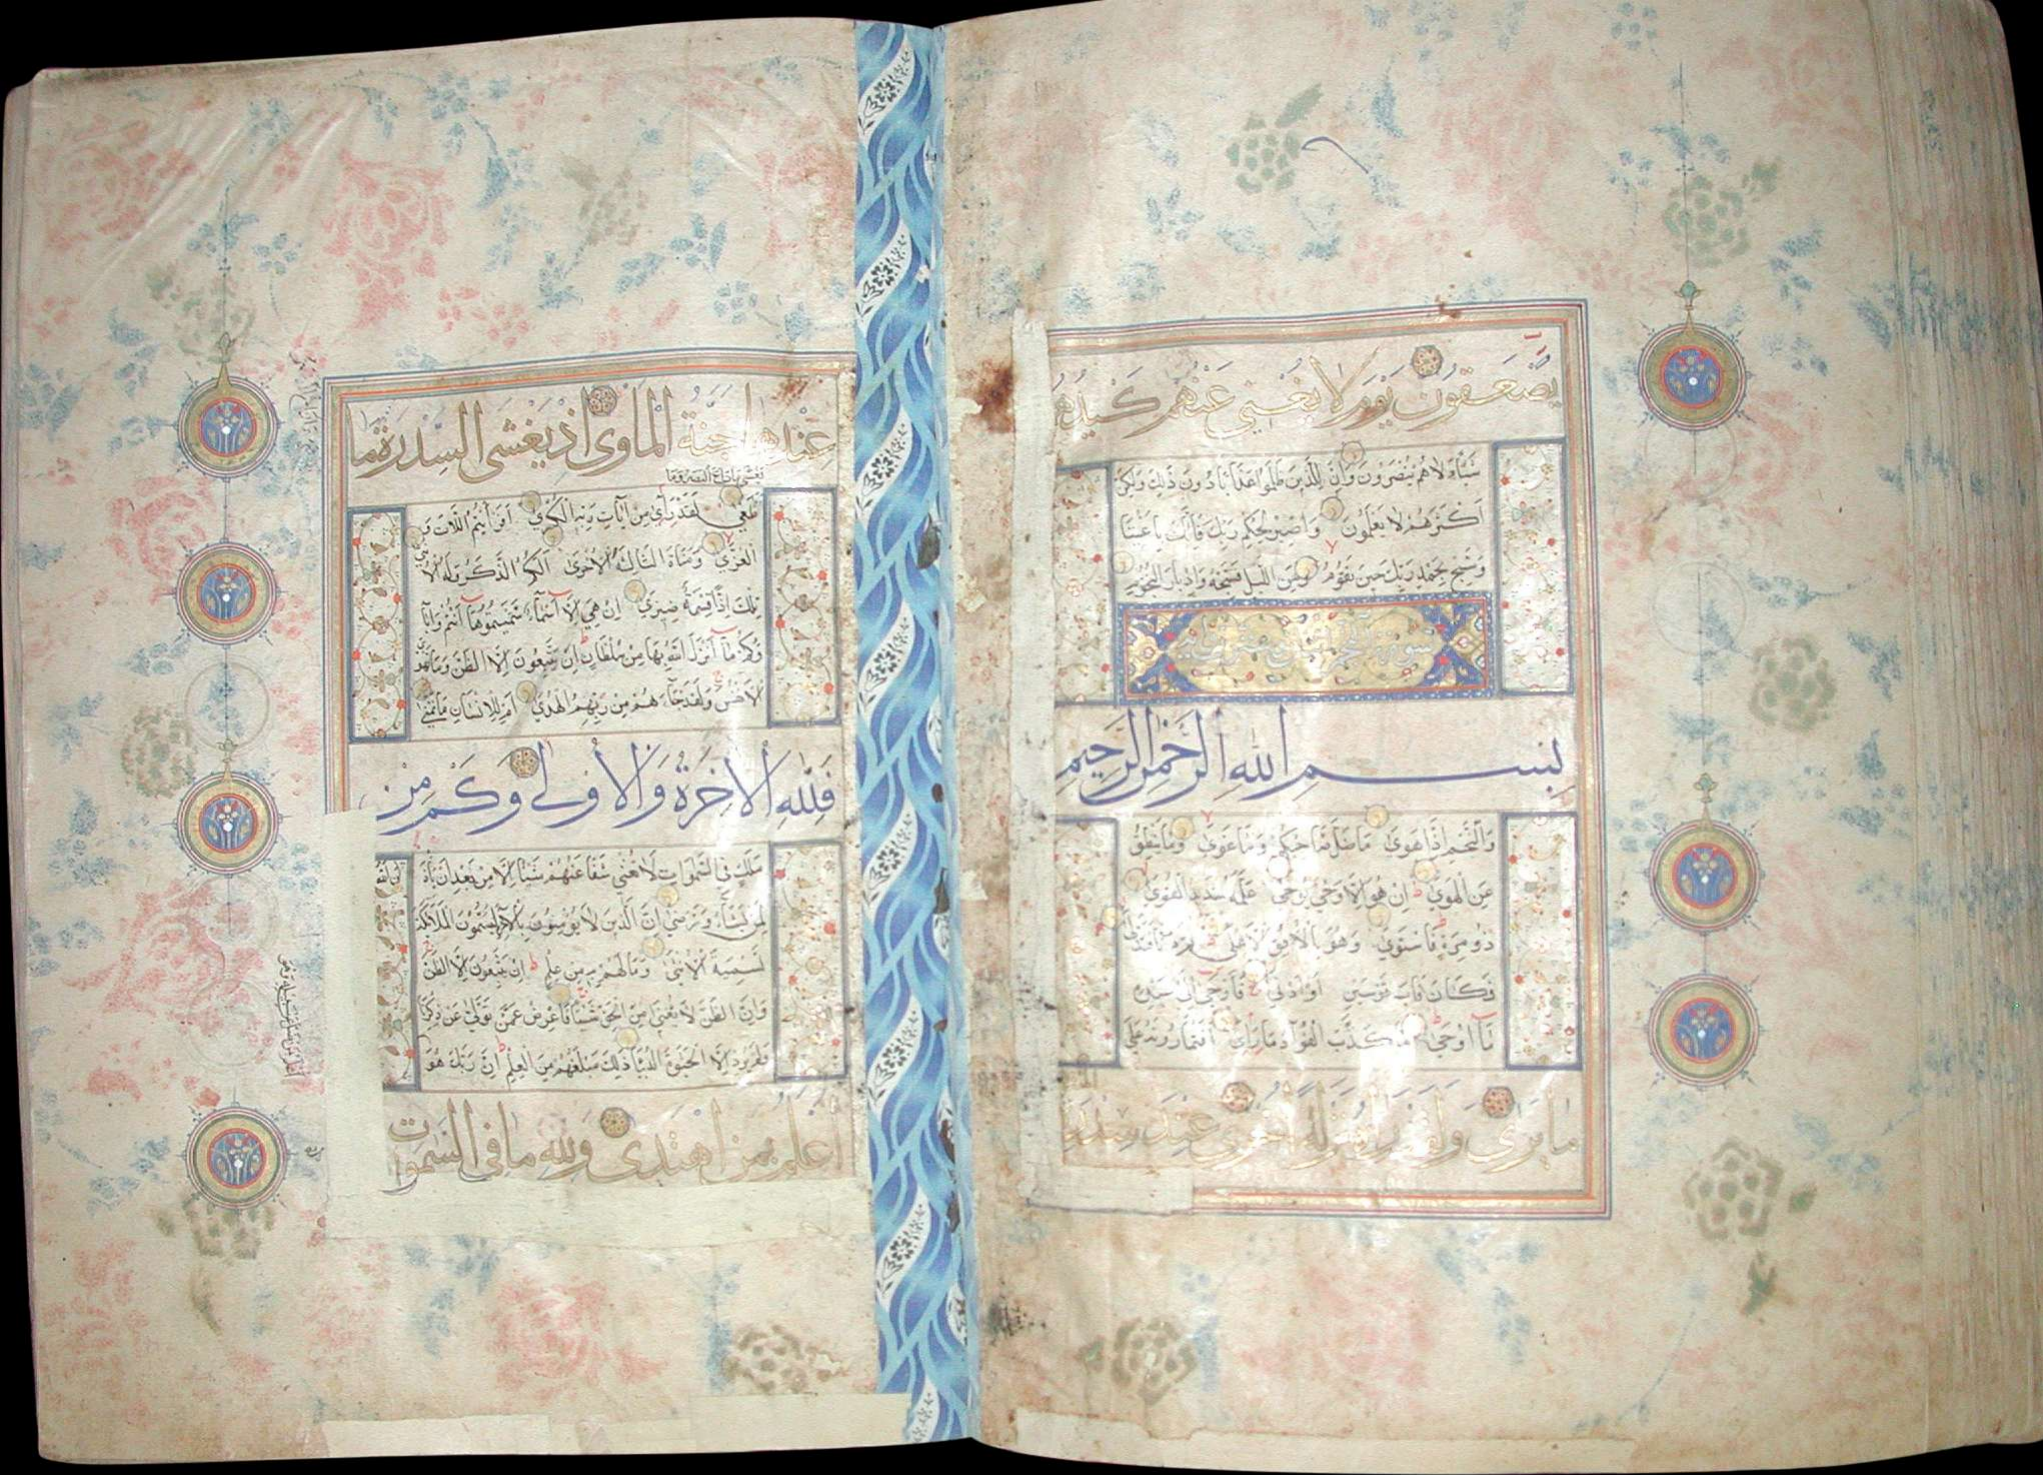 يصعقون يوم لا يغني عنهم كيدهم
شيئا ولا هم ينصرون وإن للذين ظلموا عذابا دون ذلك ولكن
أكثرهم لا يعلمون واصبر لحكم ربك فإنك بأعيننا
وسبح بحمد ربك حين تقوم ومن الليل فسبحه وإدبار النجوم
سورة النجم
بسم الله الرحمن الرحيم
والنجم إذا هوى ما ضل صاحبكم وما غوى وما ينطق
عن الهوى إن هو إلا وحي يوحى علمه شديد القوى
ذو مرة فاستوى وهو بالأفق الأعلى ثم دنا فتدلى
فكان قاب قوسين أو أدنى فأوحى إلى عبده
ما أوحى ما كذب الفؤاد ما رأى أفتمارونه على
ما يرى ولقد رآه نزلة أخرى عند سدرة
عندها جنة المأوى إذ يغشى السدرة ما
يغشى ما زاغ البصر وما
طغى لقد رأى من آيات ربه الكبرى أفرأيتم اللات و
العزى ومناة الثالثة الأخرى ألكم الذكر وله الأنثى
تلك إذا قسمة ضيزى إن هي إلا أسماء سميتموها أنتم وآبا
ؤكم ما أنزل الله بها من سلطان إن يتبعون إلا الظن وما تهوى
الأنفس ولقد جاءهم من ربهم الهدى أم للإنسان ما تمنى
فلله الآخرة والأولى وكم من
ملك في السموات لا تغني شفاعتهم شيئا إلا من بعد أن يأذن الله
لمن يشاء ويرضى إن الذين لا يؤمنون بالآخرة ليسمون الملائكة
تسمية الأنثى وما لهم به من علم إن يتبعون إلا الظن
وإن الظن لا يغني من الحق شيئا فأعرض عن من تولى عن ذكرنا
ولم يرد إلا الحيوة الدنيا ذلك مبلغهم من العلم إن ربك هو
أعلم بمن اهتدى ولله ما في السموات